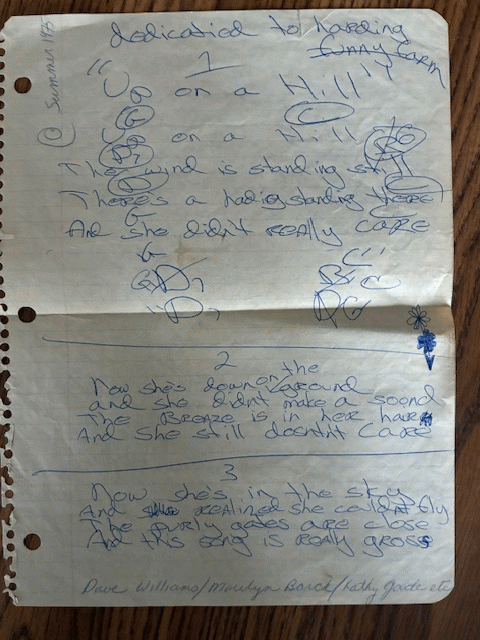 @ Summer 1975
dedicatied to harding
funny farm
1
"Up on a Hill"
G C
Up on a Hill
D7 G
The wind is standing still
D
There's a lady standing there
G
And she didn't really care
G C
G D7
D7 D G
2
Now she's down on the ground
and she didnt make a soond
The Breaze is in her hair
And she still dosntnt care
3
Now she's in the sky
And realized she couldnt fly
The purly gates are close
And this song is really gross
Dave Williams/Marilyn /Kathy Jade etc